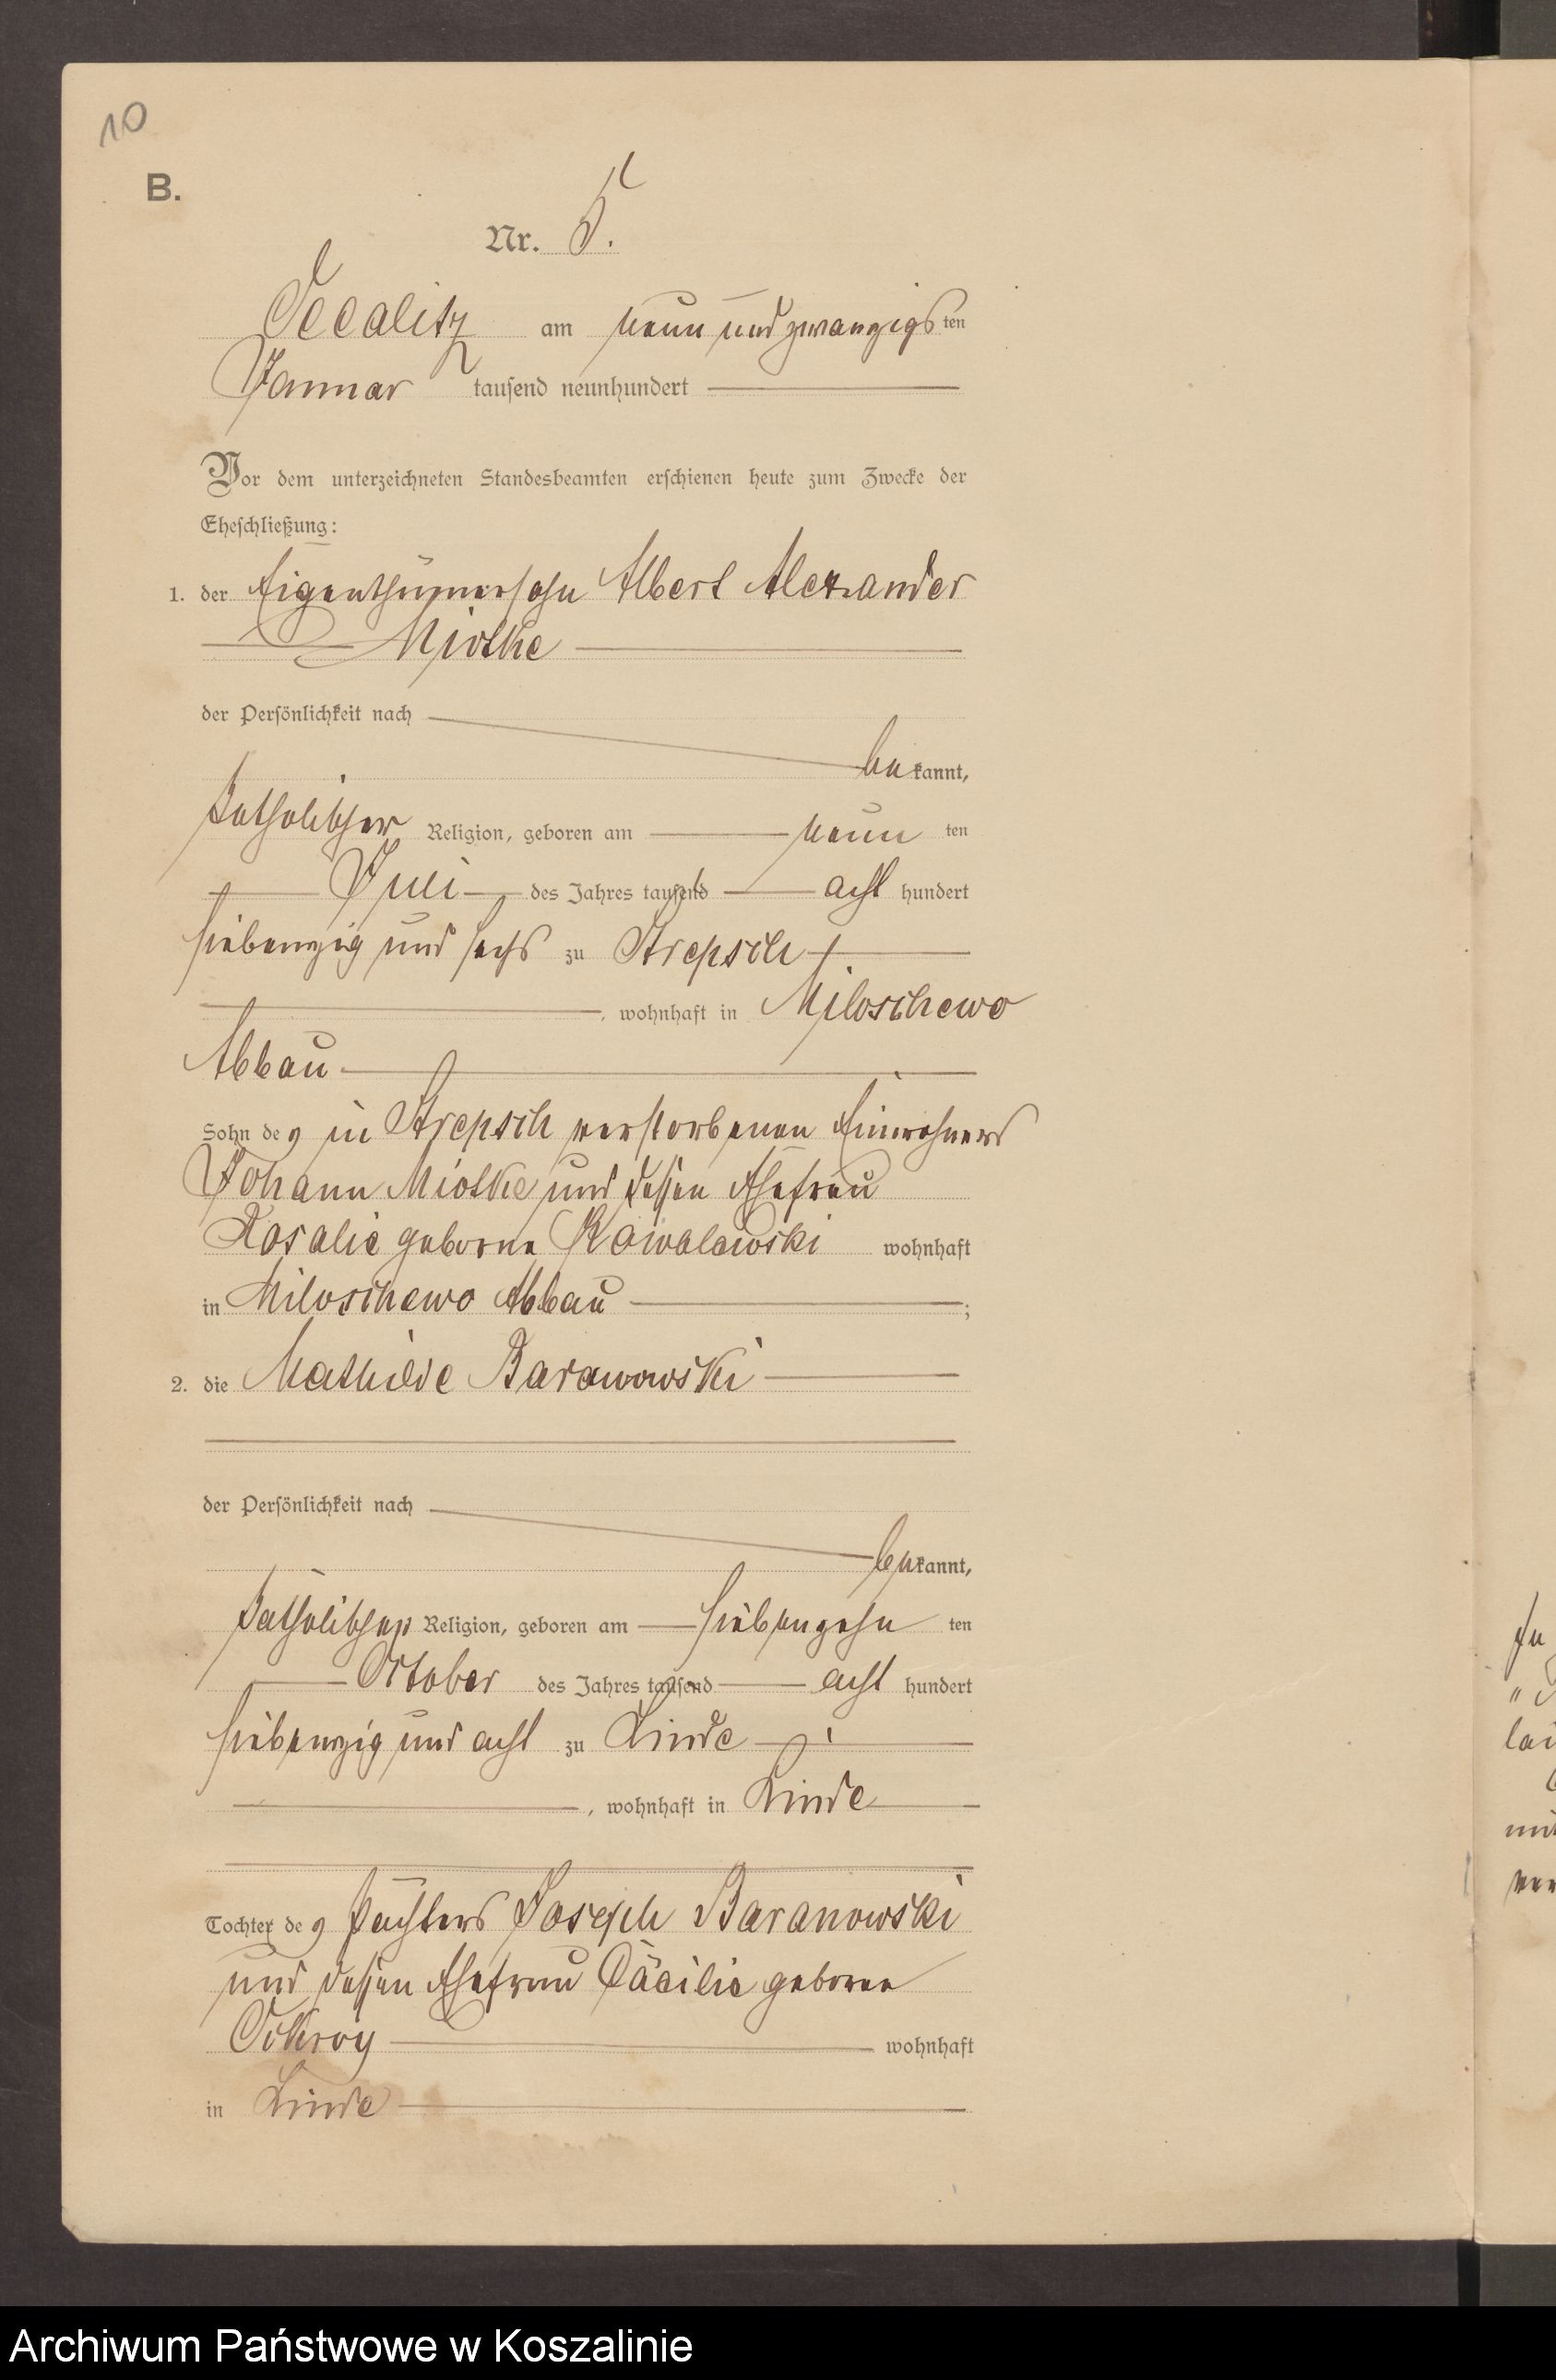 10
B.
Nr. 5.
am neun und zwanzigsten
Januar tausend neunhundert
Vor dem unterzeichneten Standesbeamten erschienen heute zum Zwecke der
Eheschließung:
1. der Eigenthümersohn Albert Alexander
Miotke
der Persönlichkeit nach
bekannt,
katholischer Religion, geboren am neun ten
Juli des Jahres tausend acht hundert
siebenzig und sechs zu Strepsch
, wohnhaft in Miloschewo
Abbau
Sohn des in Strepsch verstorbenen Einwohners
Johann Miotke und dessen Ehefrau
Rosalie geborne Kowalewski wohnhaft
in Miloschewo Abbau ;
2. die Mathilde Baranowski
der Persönlichkeit nach
bekannt,
katholischer Religion, geboren am siebenzehn ten
October des Jahres tausend acht hundert
siebenzig und acht zu Linde
, wohnhaft in Linde
Tochter des Pächters Joseph Baranowski
und dessen Ehefrau Cäcilie geborne
wohnhaft
in Linde
lai
Archiwum Państwowe w Koszalinie